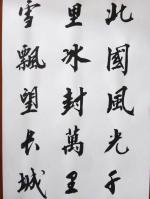 北國風光千
里冰封萬里
雪飄望长城